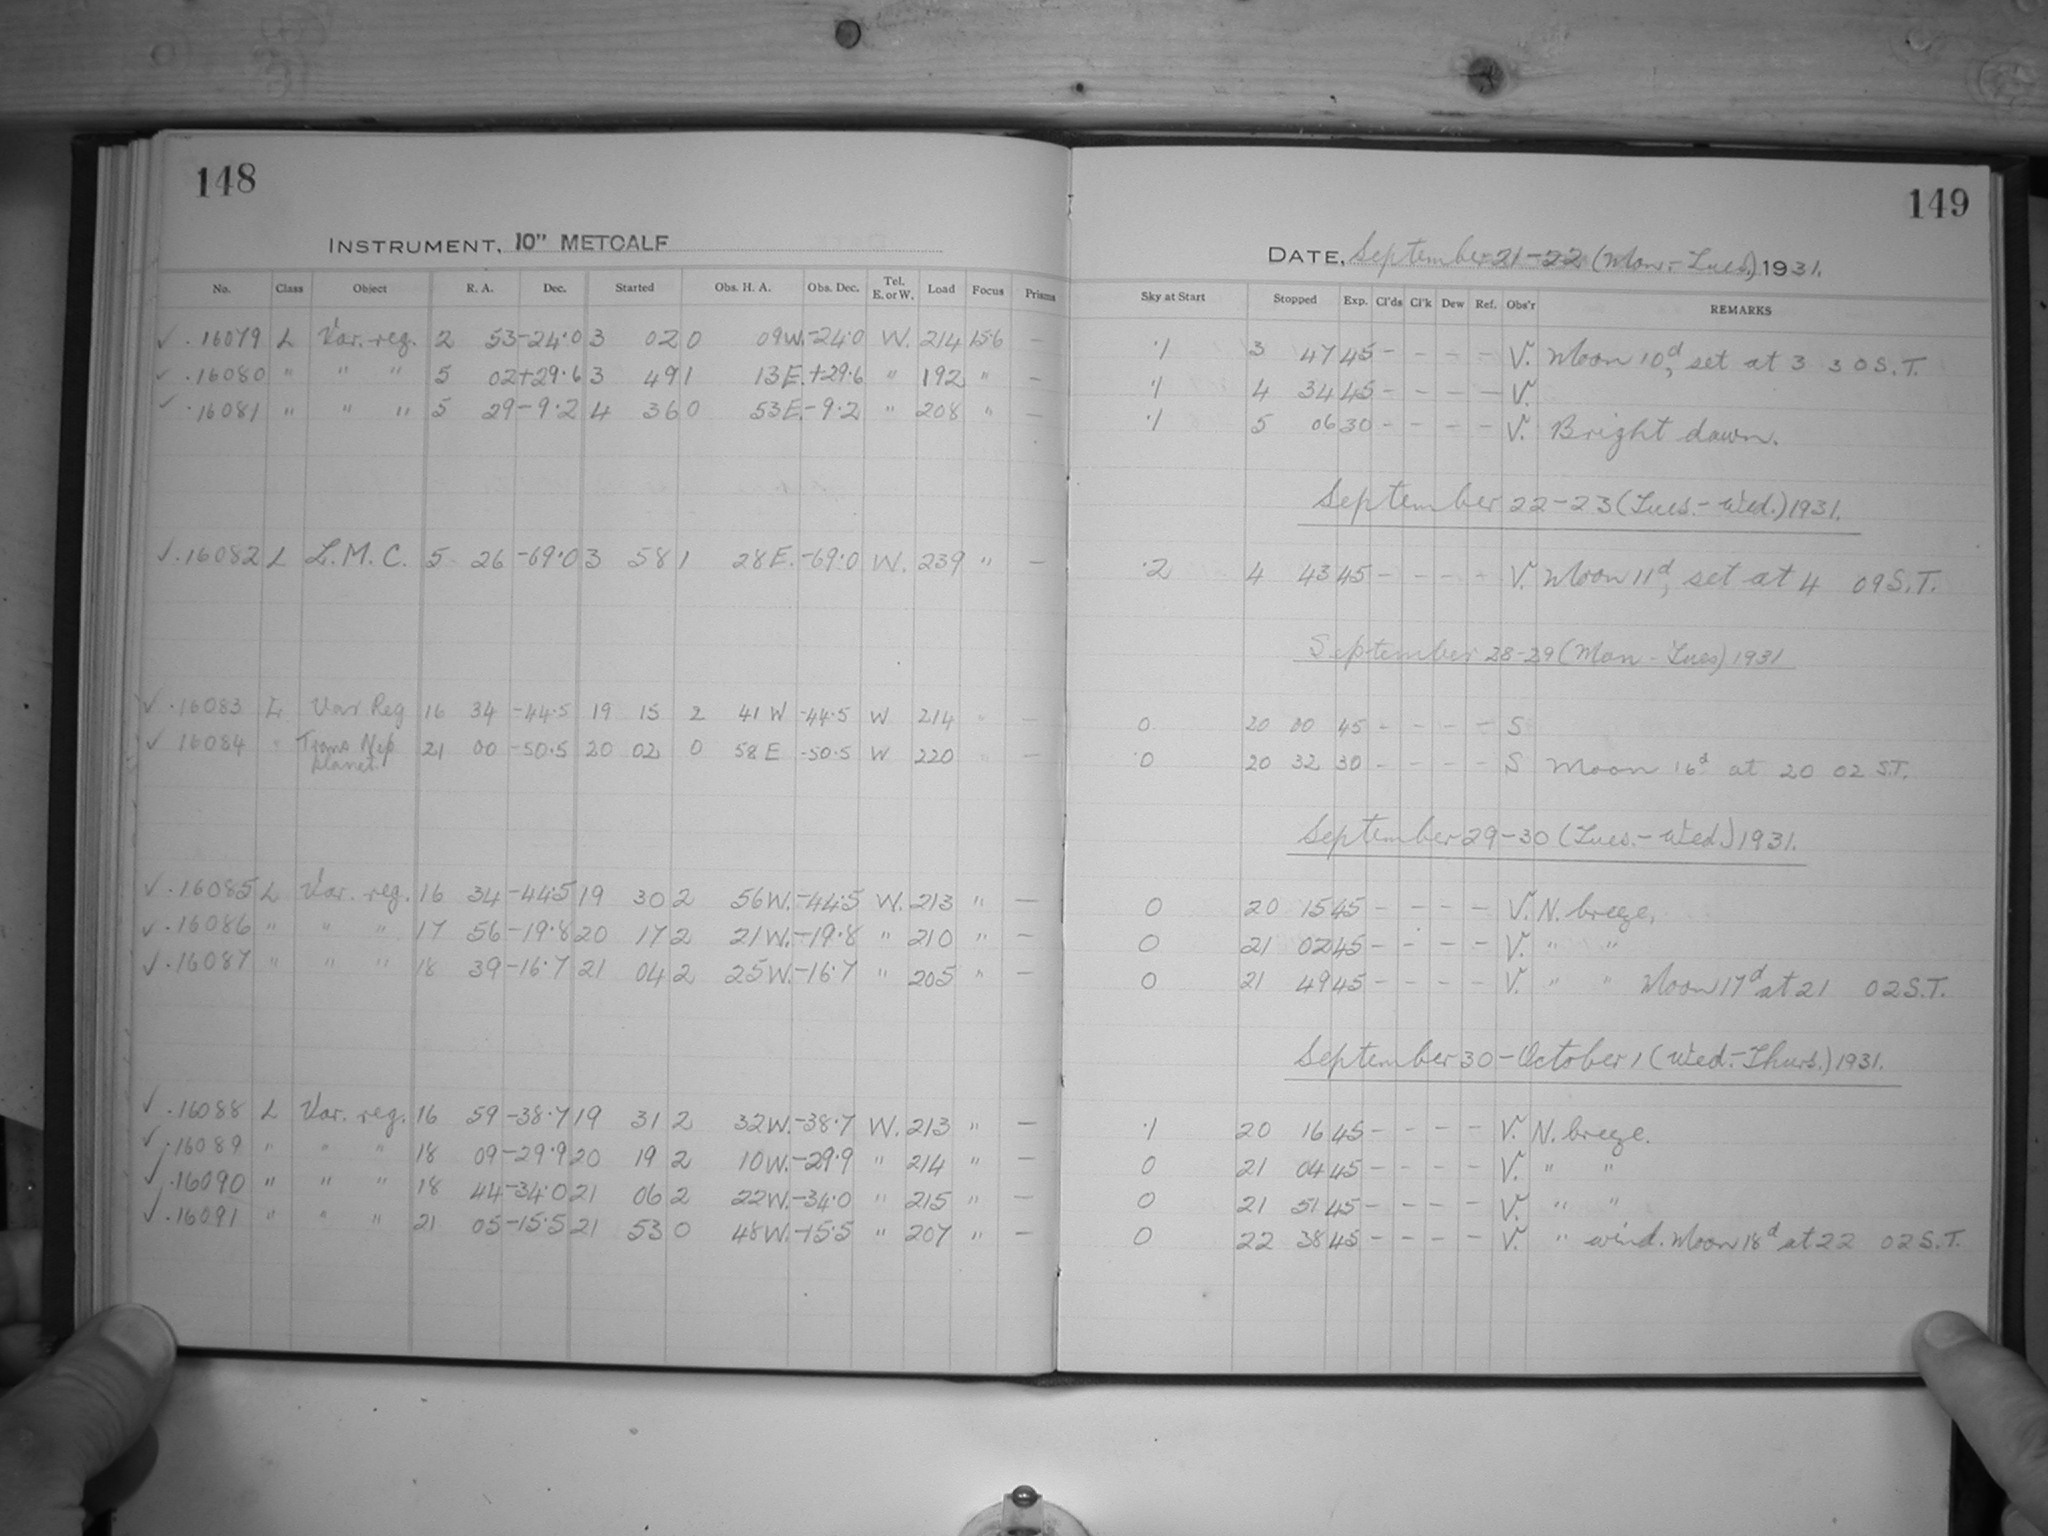 148
INSTRUMENT, 10" METCALF
No. Class Object R. A. Dec. Started Obs. H. A. Obs. Dec. Tel. E. or W. Load Focus Prisms
✓ .16079 L Var. reg. 2 53 -24.0 3 02 0 09 W. -24.0 W. 214 15.6 —
✓ .16080 " " " 5 02 +29.6 3 49 1 13 E. +29.6 " 192 " —
✓ .16081 " " " 5 29 -9.2 4 36 0 53 E. -9.2 " 208 " —
✓ .16082 L L.M.C. 5 26 -69.0 3 58 1 28 E. -69.0 W. 239 " —
✓ .16083 L Var Reg 16 34 -44.5 19 15 2 41 W -44.5 W 214 " —
✓ 16084 " Trans Nep planet 21 00 -50.5 20 02 0 58 E -50.5 W 220 " —
✓ .16085 L Var. reg. 16 34 -44.5 19 30 2 56 W. -44.5 W. 213 " —
✓ .16086 " " " 17 56 -19.8 20 17 2 21 W. -19.8 " 210 " —
✓ .16087 " " " 18 39 -16.7 21 04 2 25 W. -16.7 " 205 " —
✓ .16088 L Var. reg. 16 59 -38.7 19 31 2 32 W. -38.7 W. 213 " —
✓ .16089 " " " 18 09 -29.9 20 19 2 10 W. -29.9 " 214 " —
✓ .16090 " " " 18 44 -34.0 21 06 2 22 W. -34.0 " 215 " —
✓ .16091 " " " 21 05 -15.5 21 53 0 48 W. -15.5 " 207 " —
149
DATE, September 21-22 (Mon.-Tues.) 1931.
Sky at Start Stopped Exp. Cl'ds Cl'k Dew Ref. Obs'r REMARKS
.1 3 47 45 - - - - V. Moon 10d, set at 3 30 S.T.
.1 4 34 45 - - - - V.
.1 5 06 30 - - - - V. Bright dawn.
September 22-23 (Tues.-Wed.) 1931.
.2 4 43 45 - - - - V. Moon 11d, set at 4 09 S.T.
September 28-29 (Mon - Tues) 1931
0 20 00 45 - - - - S
0 20 32 30 - - - - S Moon 16d at 20 02 S.T.
September 29-30 (Tues.-Wed.) 1931.
0 20 15 45 - - - - V. N. breeze.
0 21 02 45 - - - - V. " "
0 21 49 45 - - - - V. " " Moon 17d at 21 02 S.T.
September 30 - October 1 (Wed.-Thurs.) 1931.
.1 20 16 45 - - - - V. N. breeze.
0 21 04 45 - - - - V. " "
0 21 51 45 - - - - V. " "
0 22 38 45 - - - - V. " wind. Moon 18d at 22 02 S.T.